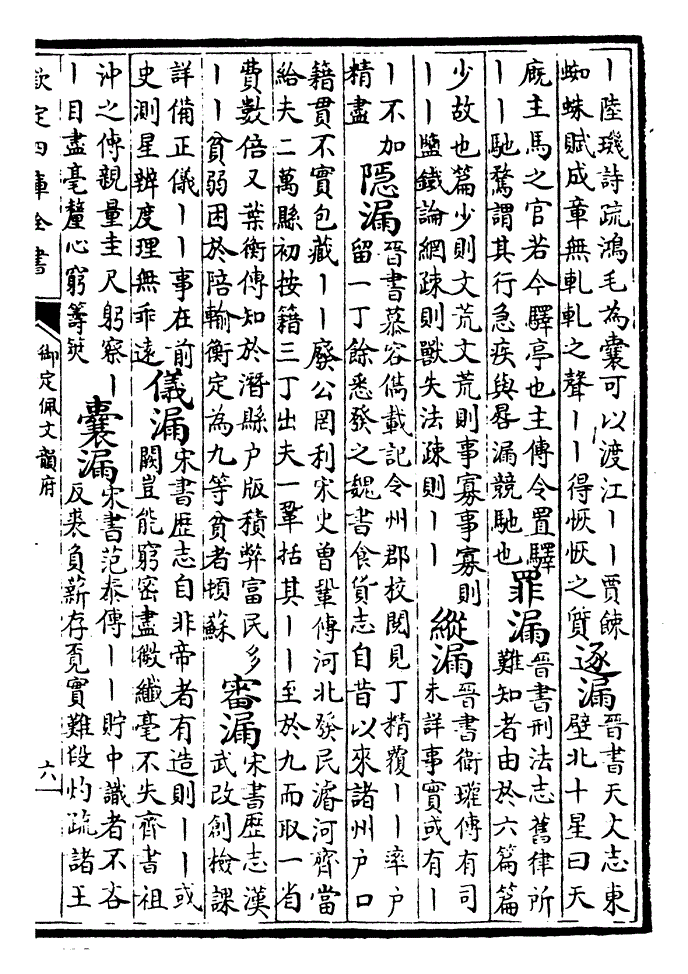 ｜陸璣詩疏鴻毛為囊可以渡江｜｜賈餗
蜘蛛賦成章無軋軋之聲｜｜得恢恢之質
逐漏
晉書天文志東
壁北十星曰天
廐主馬之官若今驛亭也主傳令置驛
｜｜馳騖謂其行急疾與晷漏競馳也
罪漏
晉書刑法志舊律所
難知者由於六篇篇
少故也篇少則文荒文荒則事寡事寡則
｜｜鹽鐵論網疎則獸失法疎則｜｜
縱漏
晉書衛瓘傳有司
未詳事實或有｜
｜不加
精盡
隱漏
晉書慕容儁載記令州郡校閱見丁精覆｜｜率户
留一丁餘悉發之魏書食貨志自昔以來諸州户口
籍貫不實包藏｜｜廢公罔利宋史曾鞏傳河北發民濬河齊當
給夫二萬縣初按籍三丁出夫一鞏括其｜｜至於九而取一省
費數倍又葉衡傳知於潛縣户版積弊富民多
｜｜貧弱困於陪輸衡定為九等貧者頓蘇
審漏
宋書歴志漢
武改創檢課
詳備正儀｜｜事在前
史測星辨度理無乖遠
儀漏
宋書歴志自非帝者有造則｜｜或
闕豈能窮密盡微纖毫不失齊書祖
沖之傳親量圭尺躬察｜
｜目盡毫釐心窮籌筴
囊漏
宋書范泰傳｜｜貯中識者不吝
反裘負薪存毳實難段灼疏諸王
欽定四庫全書
御定佩文韻府
六